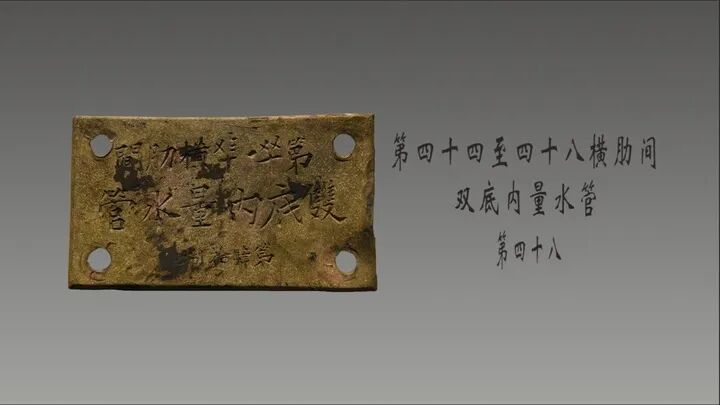 第橫肋間
雙底內量水管
第
第四十四至四十八横肋间
双底内量水管
第四十八